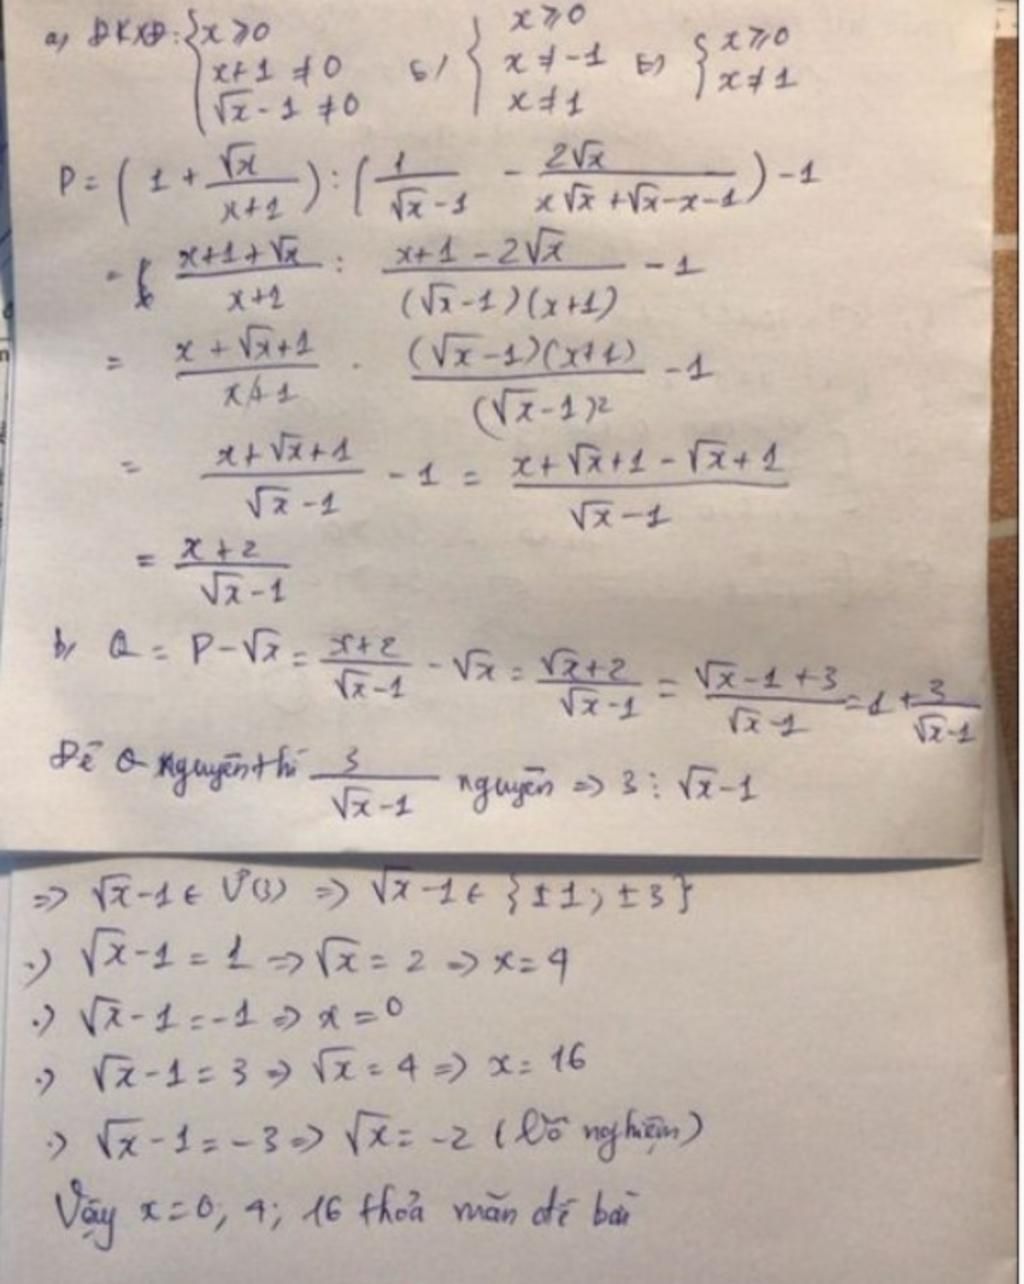 a, ĐKXĐ: { x ≥ 0; x+1 ≠ 0; √x - 1 ≠ 0 <=> { x ≥ 0; x ≠ -1; x ≠ 1 <=> { x ≥ 0; x ≠ 1
P = (1 + √x/(x+1)) : (1/(√x-1) - 2√x/(x√x+√x-x-1)) - 1
= (x+1+√x)/(x+1) : (x+1-2√x)/((√x-1)(x+1)) - 1
= (x+√x+1)/(x+1) . ((√x-1)(x+1))/(√x-1)² - 1
= (x+√x+1)/(√x-1) - 1 = (x+√x+1-√x+1)/(√x-1)
= (x+2)/(√x-1)
b, Q = P - √x = (x+2)/(√x-1) - √x = (√x+2)/(√x-1) = (√x-1+3)/(√x-1) = 1 + 3/(√x-1)
Để Q nguyên thì 3/(√x-1) nguyên => 3 ⋮ √x-1
=> √x-1 ∈ Ư(3) => √x-1 ∈ {±1; ±3}
.) √x-1 = 1 => √x = 2 => x = 4
.) √x-1 = -1 => x = 0
.) √x-1 = 3 => √x = 4 => x = 16
.) √x-1 = -3 => √x = -2 (Vô nghiệm)
Vậy x=0; 4; 16 thỏa mãn đề bài